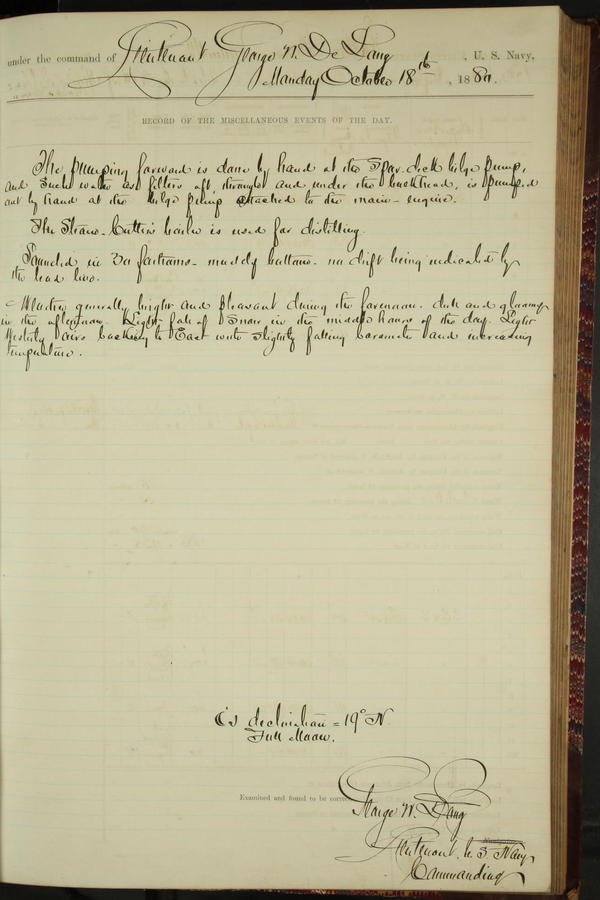 under the command of Lieutenant George W. De Long, U. S. Navy,
Monday October 18th, 1880.
RECORD OF THE MISCELLANEOUS EVENTS OF THE DAY.
The pumping forward is done by hand at the Spar-deck bilge pump,
and such water as filters aft, through and under the bulkhead, is pumped
out by hand at the bilge pump attached to the main-engine.
The Straw-Cutter boiler is used for distilling.
Sounded in 30 fathoms - muddy bottom - no drift being indicated by
the lead line.
Weather generally bright and pleasant during the forenoon, dull and gloomy
in the afternoon. Light fall of Snow in the middle hours of the day. Light
Westerly airs backing to East with slightly falling barometer and increasing
temperature.
☾'s declination = 19° N
Full Moon.
Examined and found to be correct.
George W. De Long
Lieutenant, U. S. Navy
Commanding